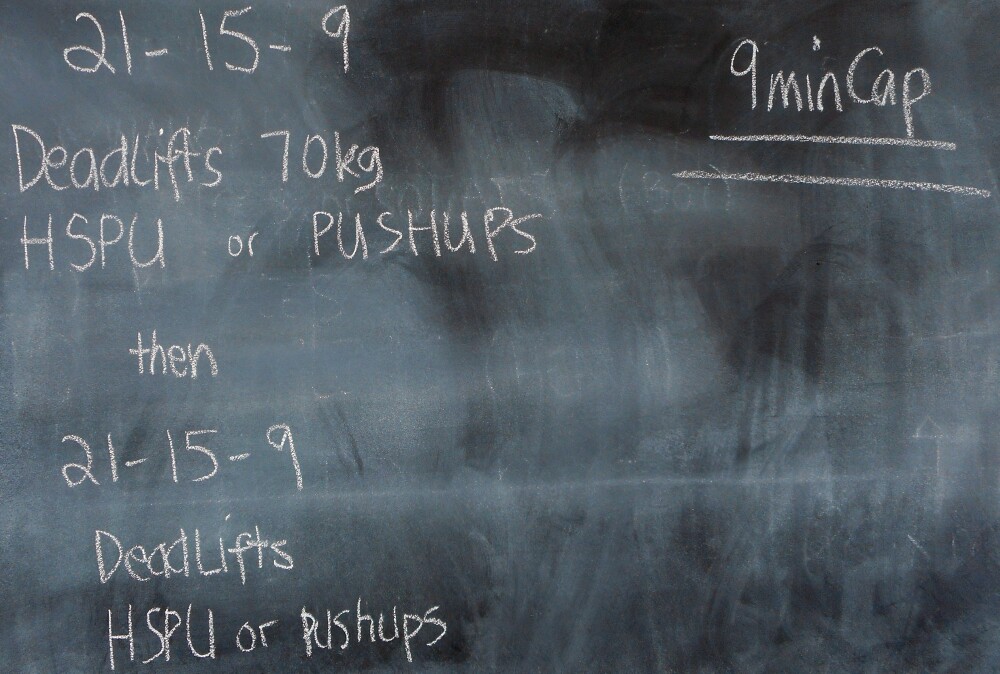 21-15-9
9minCap
DeadLifts 70kg
HSPU or PUSHUPS
then
21-15-9
DeadLifts
HSPU or Pushups